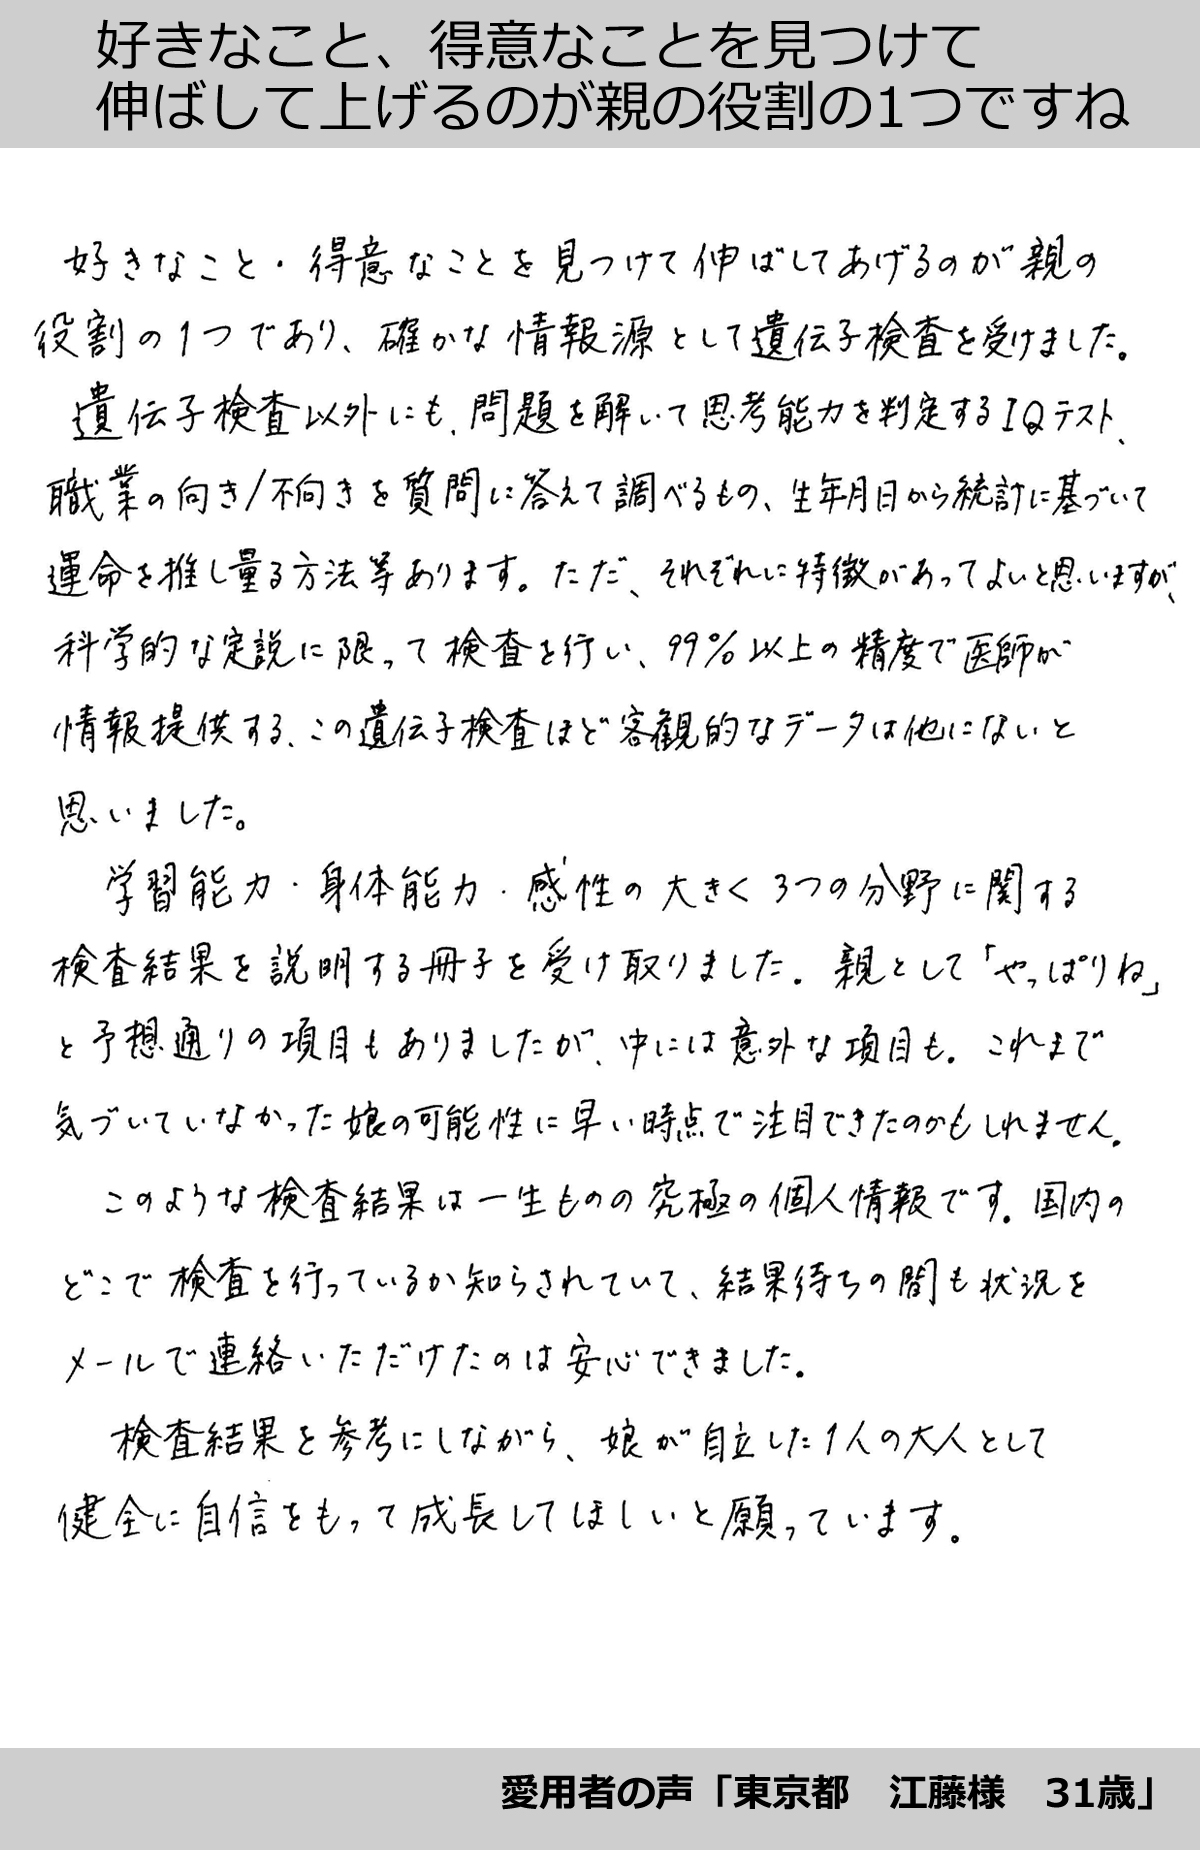 好きなこと、得意なことを見つけて
伸ばして上げるのが親の役割の1つですね
好きなこと・得意なことを見つけて伸ばしてあげるのが親の
役割の1つであり、確かな情報源として遺伝子検査を受けました。
遺伝子検査以外にも、問題を解いて思考能力を判定するIQテスト、
職業の向き/不向きを質問に答えて調べるもの、生年月日から統計に基づいて
運命を推し量る方法等あります。ただ、それぞれに特徴があってよいと思いますが、
科学的な定説に限って検査を行い、99%以上の精度で医師が
情報提供する、この遺伝子検査ほど客観的なデータは他にないと
思いました。
学習能力・身体能力・感性の大きく3つの分野に関する
検査結果を説明する冊子を受け取りました。親として「やっぱりね」
と予想通りの項目もありましたが、中には意外な項目も。これまで
気づいていなかった娘の可能性に早い時点で注目できたのかもしれません。
このような検査結果は一生ものの究極の個人情報です。国内の
どこで検査を行っているか知らされていて、結果待ちの間も状況を
メールで連絡いただけたのは安心できました。
検査結果を参考にしながら、娘が自立した1人の大人として
健全に自信をもって成長してほしいと願っています。
愛用者の声「東京都 江藤様 31歳」